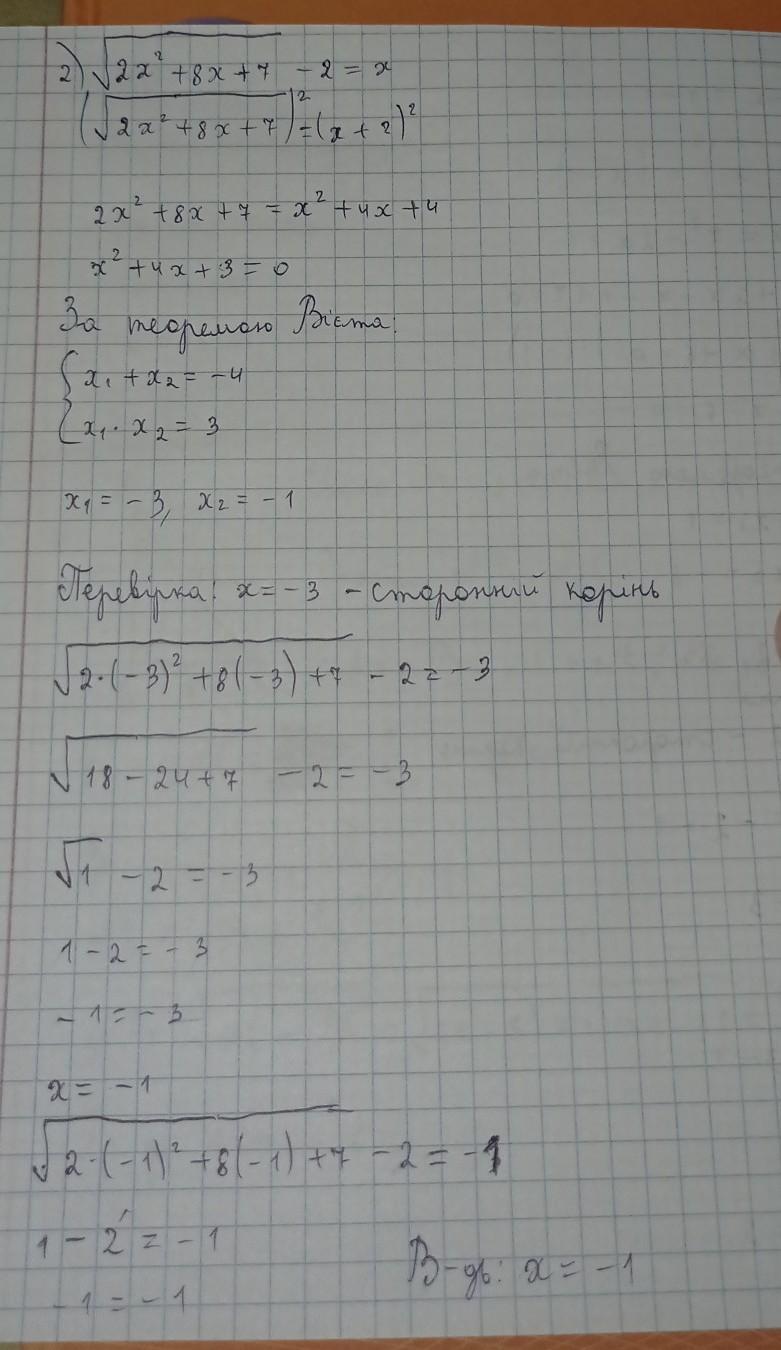 2) √(2x² + 8x + 7) - 2 = x
(√(2x² + 8x + 7))² = (x + 2)²
2x² + 8x + 7 = x² + 4x + 4
x² + 4x + 3 = 0
За теоремою Вієта:
{ x₁ + x₂ = -4
x₁ · x₂ = 3
x₁ = -3, x₂ = -1
Перевірка: x = -3 - сторонній корінь
√(2·(-3)² + 8(-3) + 7) - 2 = -3
√(18 - 24 + 7) - 2 = -3
√1 - 2 = -3
1 - 2 = -3
-1 = -3
x = -1
√(2·(-1)² + 8(-1) + 7) - 2 = -1
1 - 2 = -1
-1 = -1
В-дь: x = -1